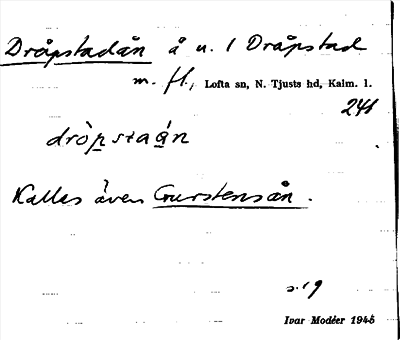 Dråpstadån å u. / Dråpstad
m. fl., Lofta sn, N. Tjusts hd, Kalm. l.
241
dròpstaán
Kallas även Gurstensån.
s. 19
Ivar Modéer 1945